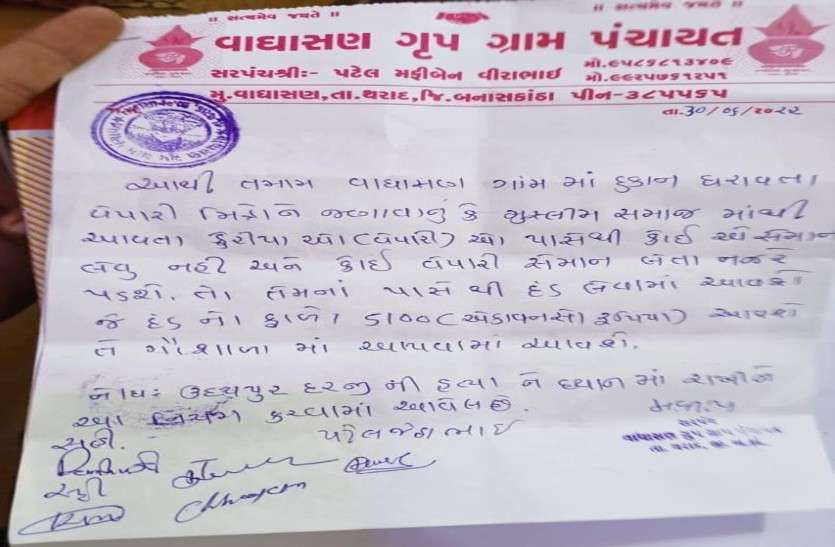 ॥ સત્યમેવ જયતે ॥
॥ સત્યમેવ જયતે ॥
વાઘાસણ ગૃપ ગ્રામ પંચાયત
સરપંચશ્રીઃ- પટેલ મફીબેન વીરાભાઈ
મો.૯૫૮૬૮૧૩૪૦૯
મો.૯૯૨૫૭૬૧૨૫૧
મુ.વાઘાસણ,તા.થરાદ,જિ.બનાસકાંઠા પીન-૩૮૫૫૬૫
તા.30/06/૨૦૨૨
આથી તમામ વાઘાસણ ગામ માં દુકાન ધરાવતા
વેપારી મિત્રોને જણાવાનું કે મુસ્લીમ સમાજ માંથી
આવતા ફેરીયા ઓ (વેપારી) ઓ પાસેથી કોઈ એ સામાન
લેવુ નહી અને કોઈ વેપારી સામાન લેતા નજરે
પડશે. તો તેમનાં પાસે થી દંડ લેવામાં આવશે
જે દંડ નો ફાળો 5100 (એકાવનસો રૂપિયા) આવશે
તે ગૌશાળા માં આપવામાં આવશે.
નોંધઃ ઉદયપુર દરજી ની હત્યા ને ધ્યાન માં રાખીને
આ કરવામાં આવેલ છે.
સહી.
સરપંચ
વાઘાસણ ગૃપ ગ્રામ પંચાયત
તા. થરાદ,
સહી